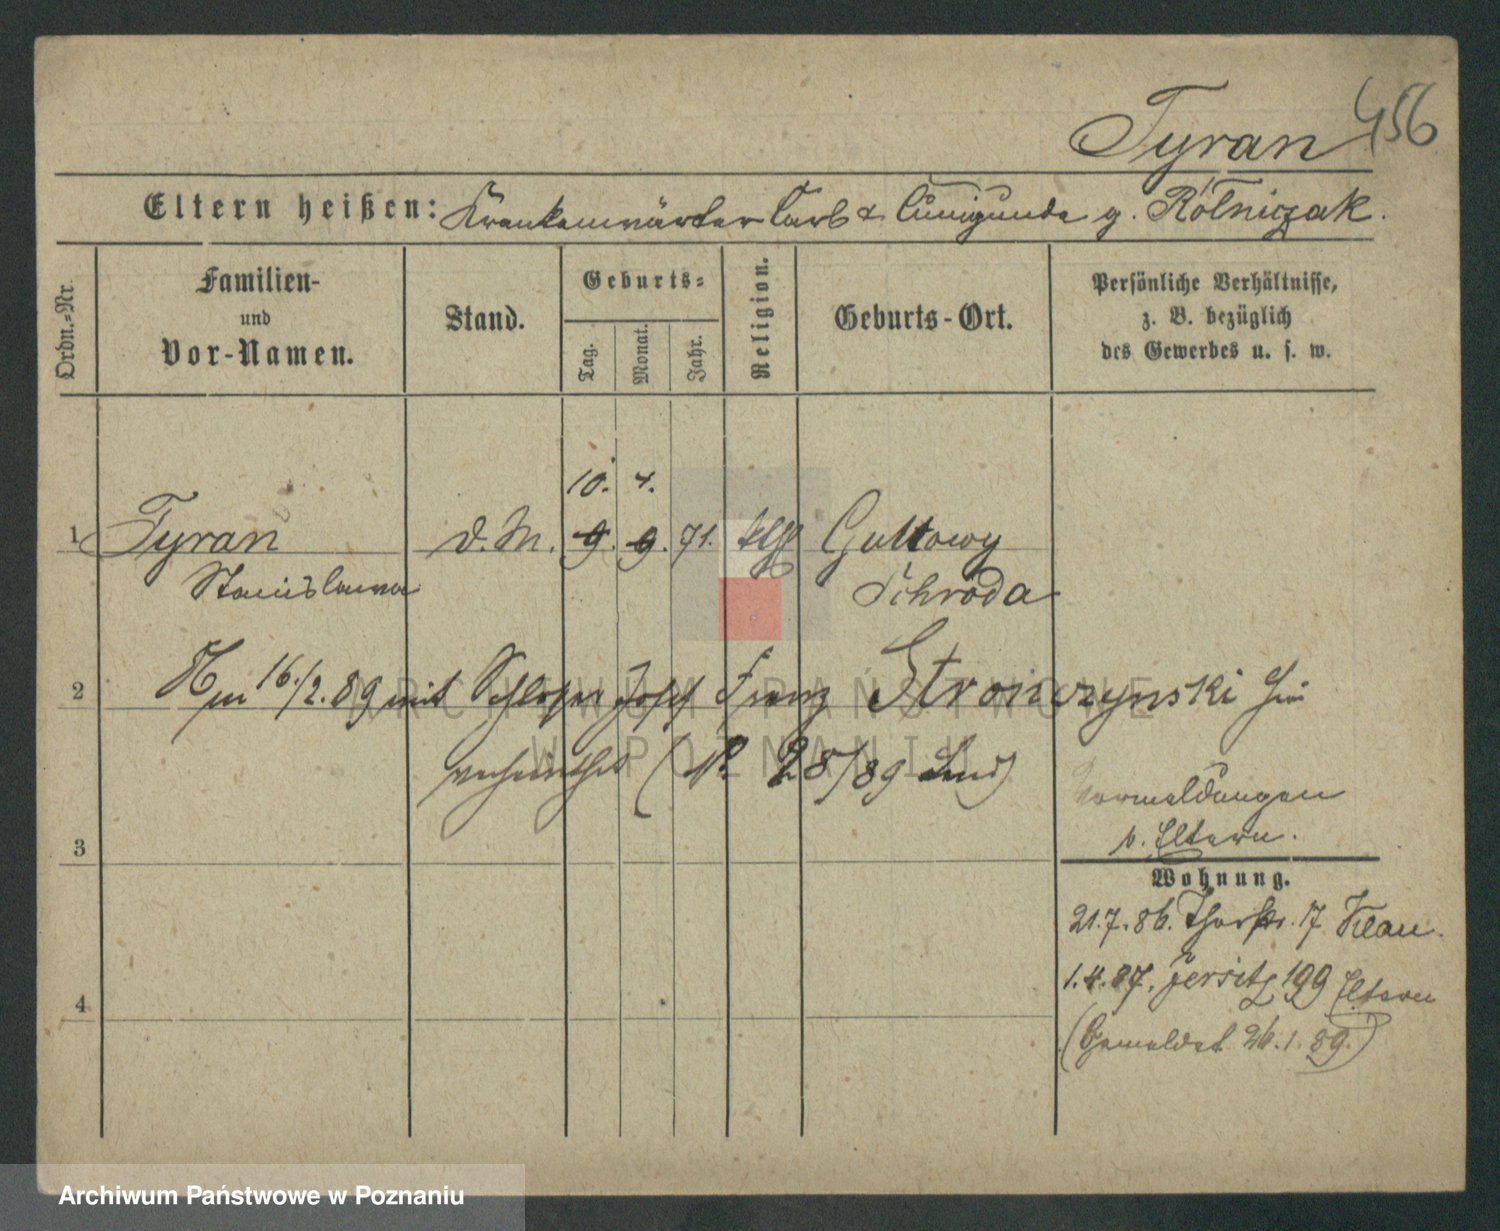 Tyran 456
Eltern heißen: Krankenwärter Carl & Cunigunde g. Rólniczak.
Ordn.-Nr.
Familien-
und
Vor-Namen.
Stand.
Geburts-
Tag.
Monat.
Jahr.
Religion.
Geburts-Ort.
Persönliche Verhältnisse,
z. B. bezüglich
des Gewerbes u. s. w.
10. 4.
1 Tyran d. M. 9. 9. 71. Gultowy
Stanislawa Schroda
2 16./2. 89 mit Schlosser Josef Franz Stronczynski hier
verheirathet (N. 28/89 )
Vormeldungen
b. Eltern.
3
Wohnung.
21.7.86. Thorstr. 17
1.4.87. Jersitz 199 Eltern
4
(Gemeldet 26.1.89.)
ARCHIWUM PAŃSTWOWE
W POZNANIU
Archiwum Państwowe w Poznaniu